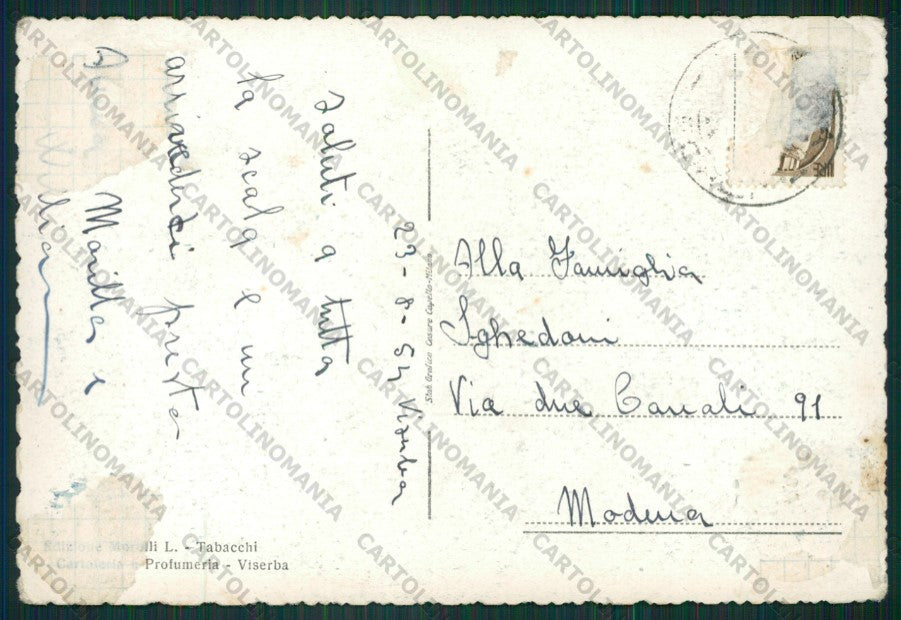 23-8-54 Viserba
Saluti a tutta
la scala e un
arrivederci presto
Marilla e
Alla Famiglia
Sghedoni
Via due Canali 91
Modena
Stab Grafico Cesare Capello-Milano
Edizione Morelli L. - Tabacchi
Cartoleria - Profumeria - Viserba
LIRE
CARTOLINOMANIA